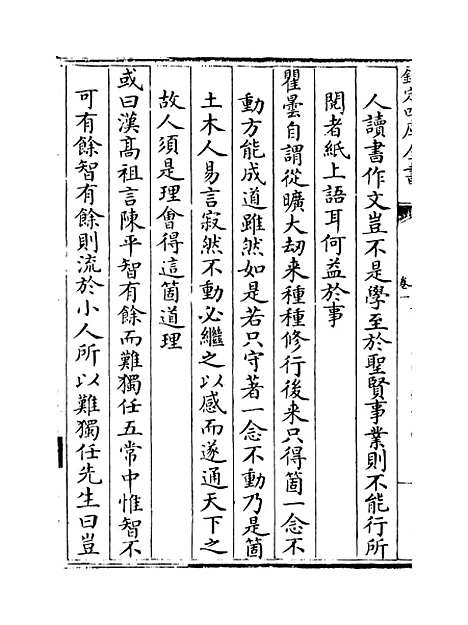 欽定四庫全書
卷一
人讀書作文豈不是學至於聖賢事業則不能行所
閱者紙上語耳何益於事
瞿曇自謂從曠大刼来種種修行後来只得箇一念不
動方能成道雖然如是若只守著一念不動乃是箇
土木人易言寂然不動必繼之以感而遂通天下之
故人須是理會得這箇道理
或曰漢髙祖言陳平智有餘而難獨任五常中惟智不
可有餘智有餘則流於小人所以難獨任先生曰豈